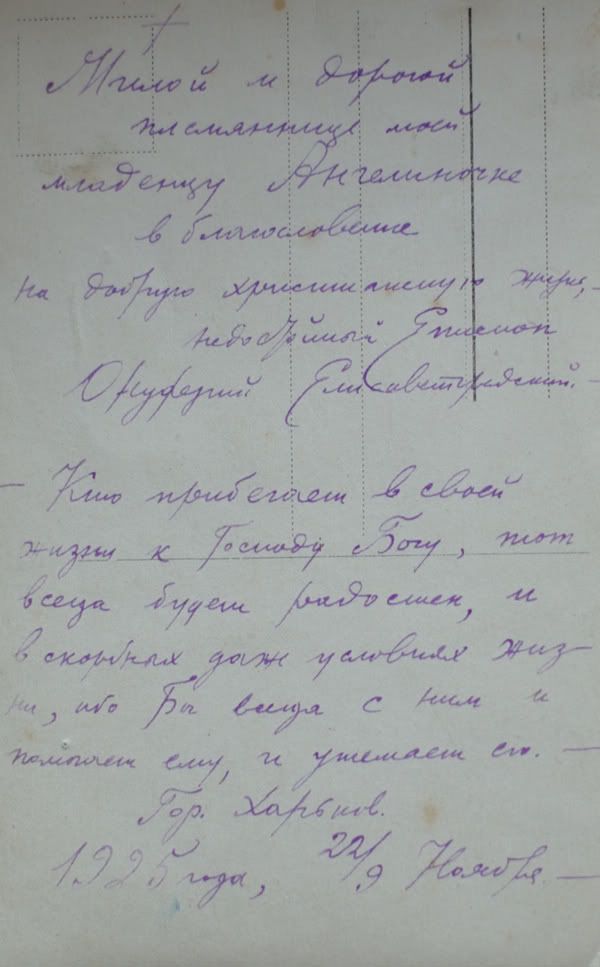 Милой и дорогой
племяннице моей
младенцу Ангелиночке
в благословение
на добрую христианскую жизнь,
недостойный Епископ
Онуфрий Елисаветградский. –
– Кто прибегает в своей
жизни к Господу Богу, тот
всегда будет радостен, и
в скорбных даж условиях жиз-
ни, ибо Бг всегда с ним и
помогает ему, и утешает его. –
Гор. Харьков.
1925 года, 22/9 Ноября –